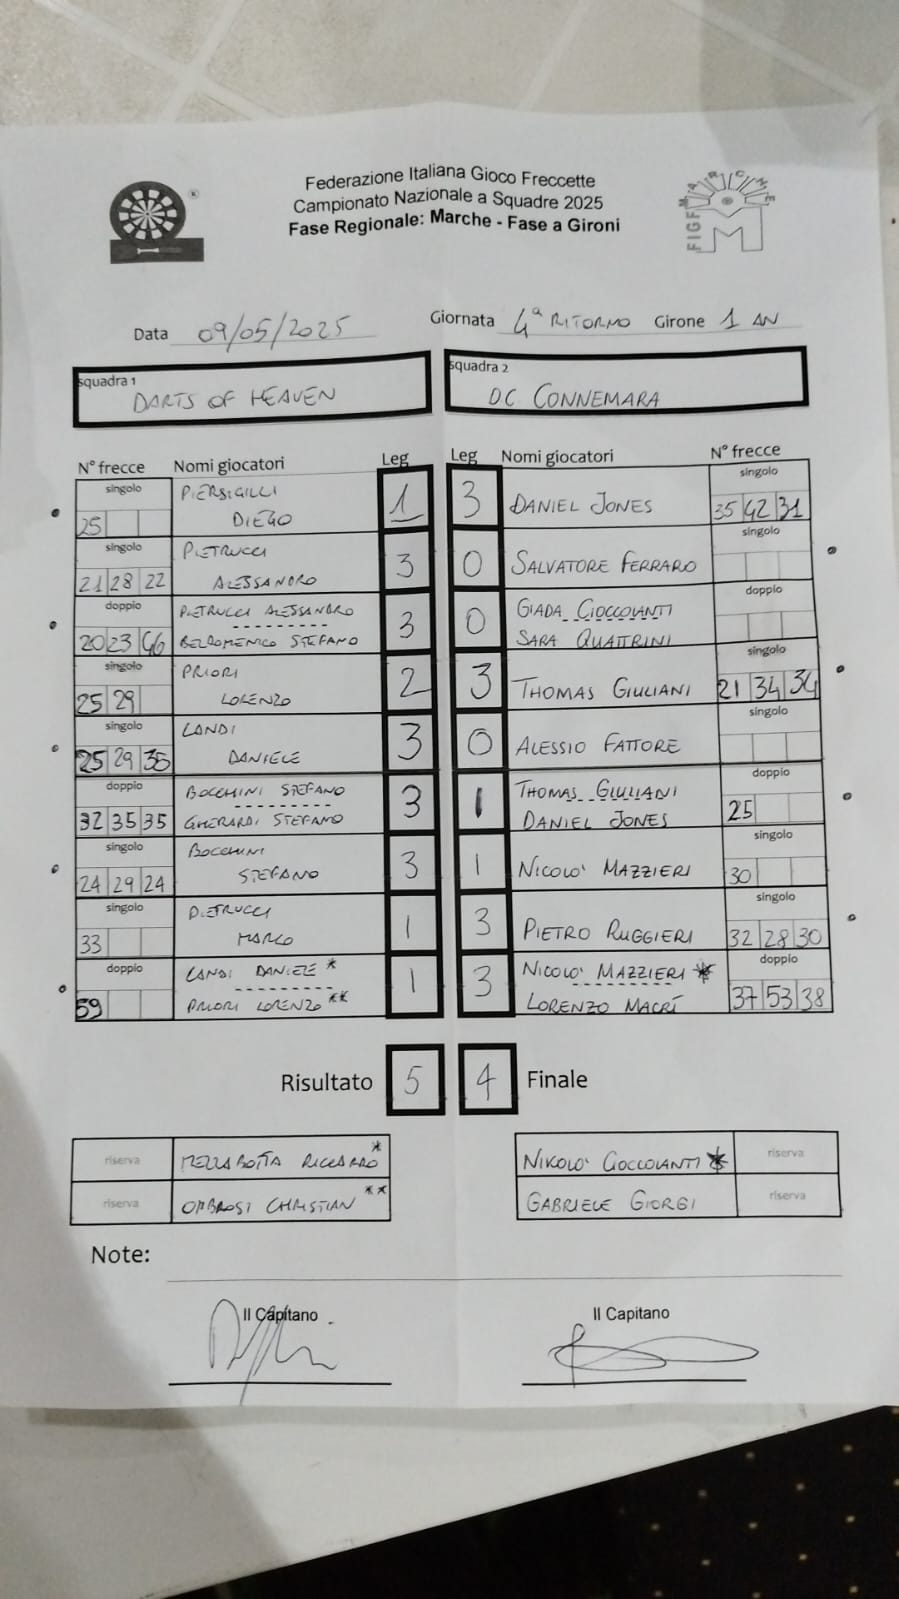 Federazione Italiana Gioco Freccette
Campionato Nazionale a Squadre 2025
Fase Regionale: Marche - Fase a Gironi
MARCHE
FIGF
M
Data 09/05/2025
Giornata 4ª RITORNO Girone 1 AN
squadra 1
DARTS OF HEAVEN
squadra 2
DC CONNEMARA
N° frecce Nomi giocatori Leg Leg Nomi giocatori N° frecce
singolo PIERSIGILLI singolo
25 DIEGO 1 3 DANIEL JONES 35 42 31
singolo PIETRUCCI singolo
21 28 22 ALESSANDRO 3 0 SALVATORE FERRARO
doppio PIETRUCCI ALESSANDRO GIADA CIOCCOLANTI doppio
20 23 46 BELDOMENICO STEFANO 3 0 SARA QUATTRINI
singolo PRIORI singolo
25 29 LORENZO 2 3 THOMAS GIULIANI 21 34 34
singolo LANDI singolo
25 29 35 DANIELE 3 0 ALESSIO FATTORE
doppio BOCCHINI STEFANO THOMAS GIULIANI doppio
32 35 35 GHERARDI STEFANO 3 1 DANIEL JONES 25
singolo BOCCHINI singolo
24 29 24 STEFANO 3 1 NICOLO' MAZZIERI 30
singolo PIETRUCCI singolo
33 MARCO 1 3 PIETRO RUGGIERI 32 28 30
doppio LANDI DANIELE * NICOLO' MAZZIERI * doppio
59 PRIORI LORENZO ** 1 3 LORENZO MACRÍ 37 53 38
Risultato 5 4 Finale
riserva MEZZABOTTA RICCARDO * NIKOLO' CIOCCOLANTI * riserva
riserva OMBROSI CHRISTIAN ** GABRIELE GIORGI riserva
Note:
Il Capitano Il Capitano